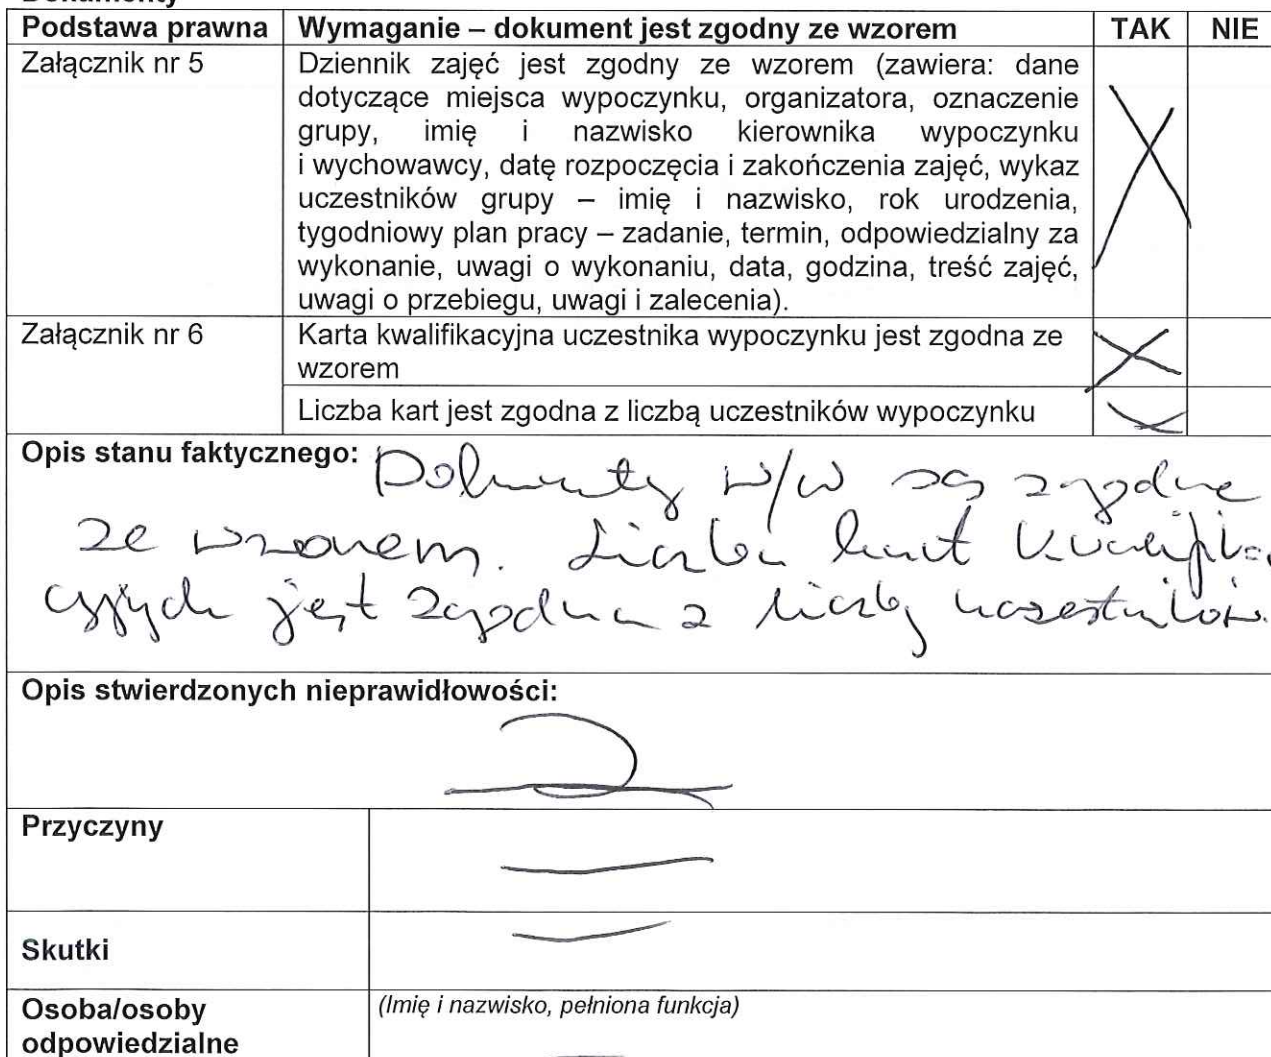 Dokumenty
Podstawa prawna Wymaganie – dokument jest zgodny ze wzorem TAK NIE
Załącznik nr 5 Dziennik zajęć jest zgodny ze wzorem (zawiera: dane
dotyczące miejsca wypoczynku, organizatora, oznaczenie
grupy, imię i nazwisko kierownika wypoczynku
i wychowawcy, datę rozpoczęcia i zakończenia zajęć, wykaz
uczestników grupy – imię i nazwisko, rok urodzenia,
tygodniowy plan pracy – zadanie, termin, odpowiedzialny za
wykonanie, uwagi o wykonaniu, data, godzina, treść zajęć,
uwagi o przebiegu, uwagi i zalecenia).
Załącznik nr 6 Karta kwalifikacyjna uczestnika wypoczynku jest zgodna ze
wzorem
Liczba kart jest zgodna z liczbą uczestników wypoczynku
Opis stanu faktycznego: Dokumenty w/w są zgodne
ze wzorem. Liczba kart kwalifika-
cyjnych jest zgodna z liczbą uczestników.
Opis stwierdzonych nieprawidłowości:
Przyczyny
Skutki
Osoba/osoby (Imię i nazwisko, pełniona funkcja)
odpowiedzialne